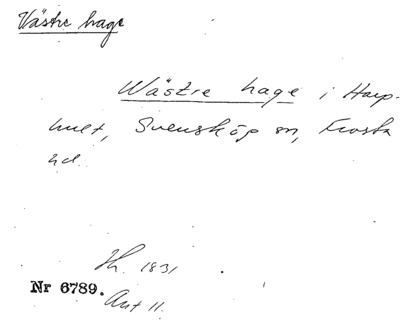 Västre hage
Wästre hage i Harp-
hult, Svensköp sn, Frosta
hd.
Lh. 1831
Nr 6789.
Akt 11.